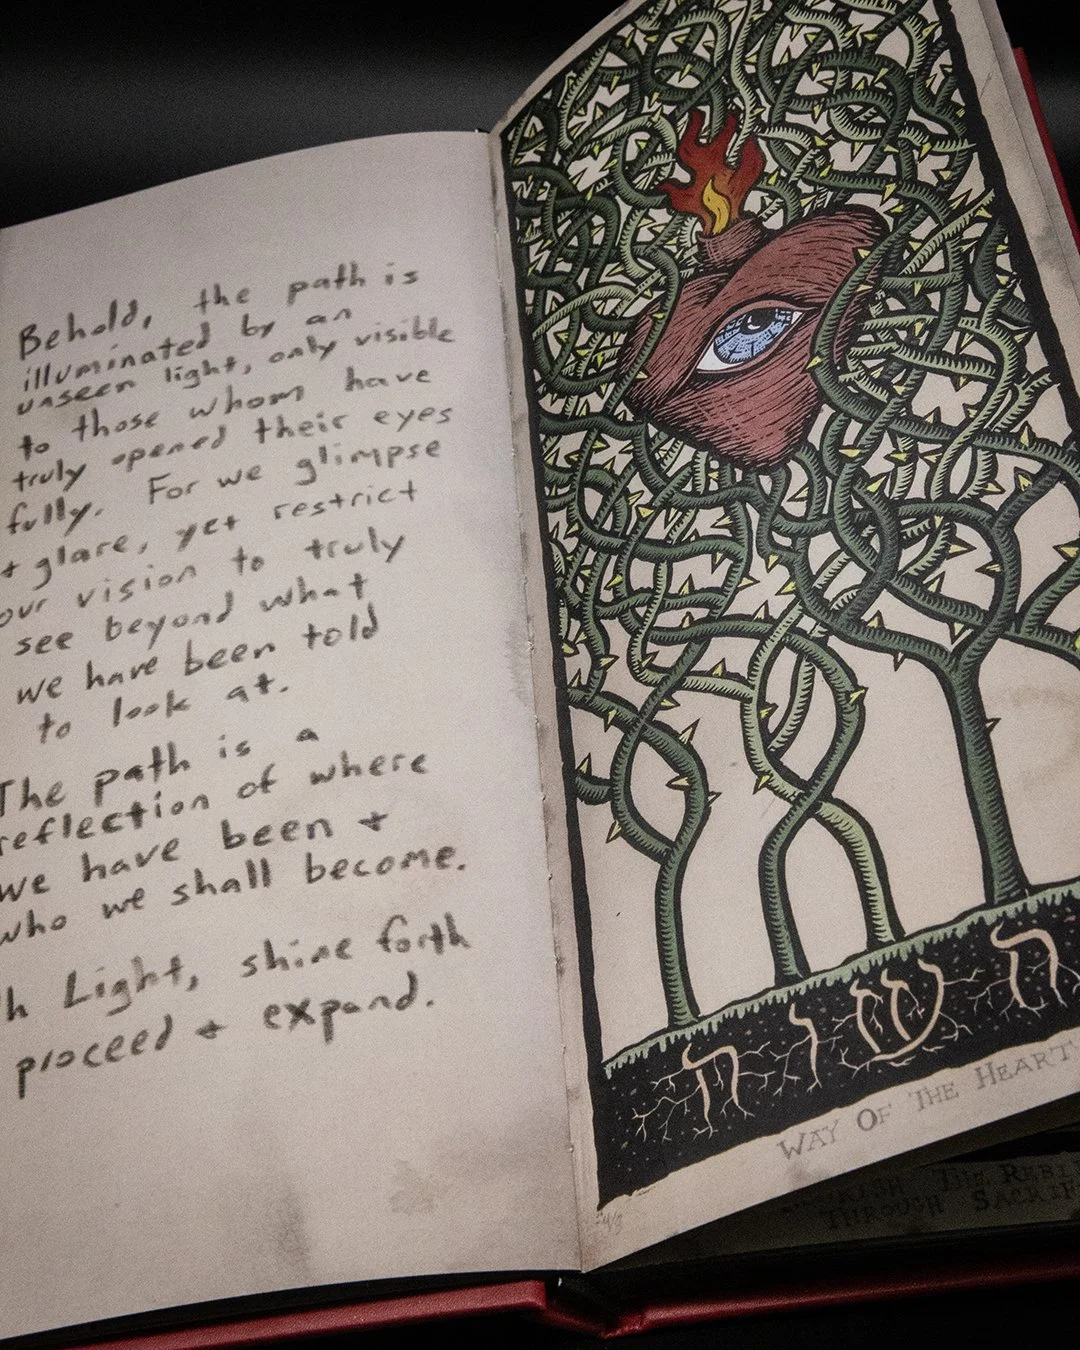 Behold, the path is
illuminated by an
unseen light, only visible
to those whom have
truly opened their eyes
fully. For we glimpse
+ glare, yet restrict
our vision to truly
see beyond what
we have been told
to look at.
The path is a
reflection of where
we have been +
who we shall become.
h Light, shine forth
proceed + expand.
השוה
WAY OF THE HEART
THE REBI
THROUGH SACRIF